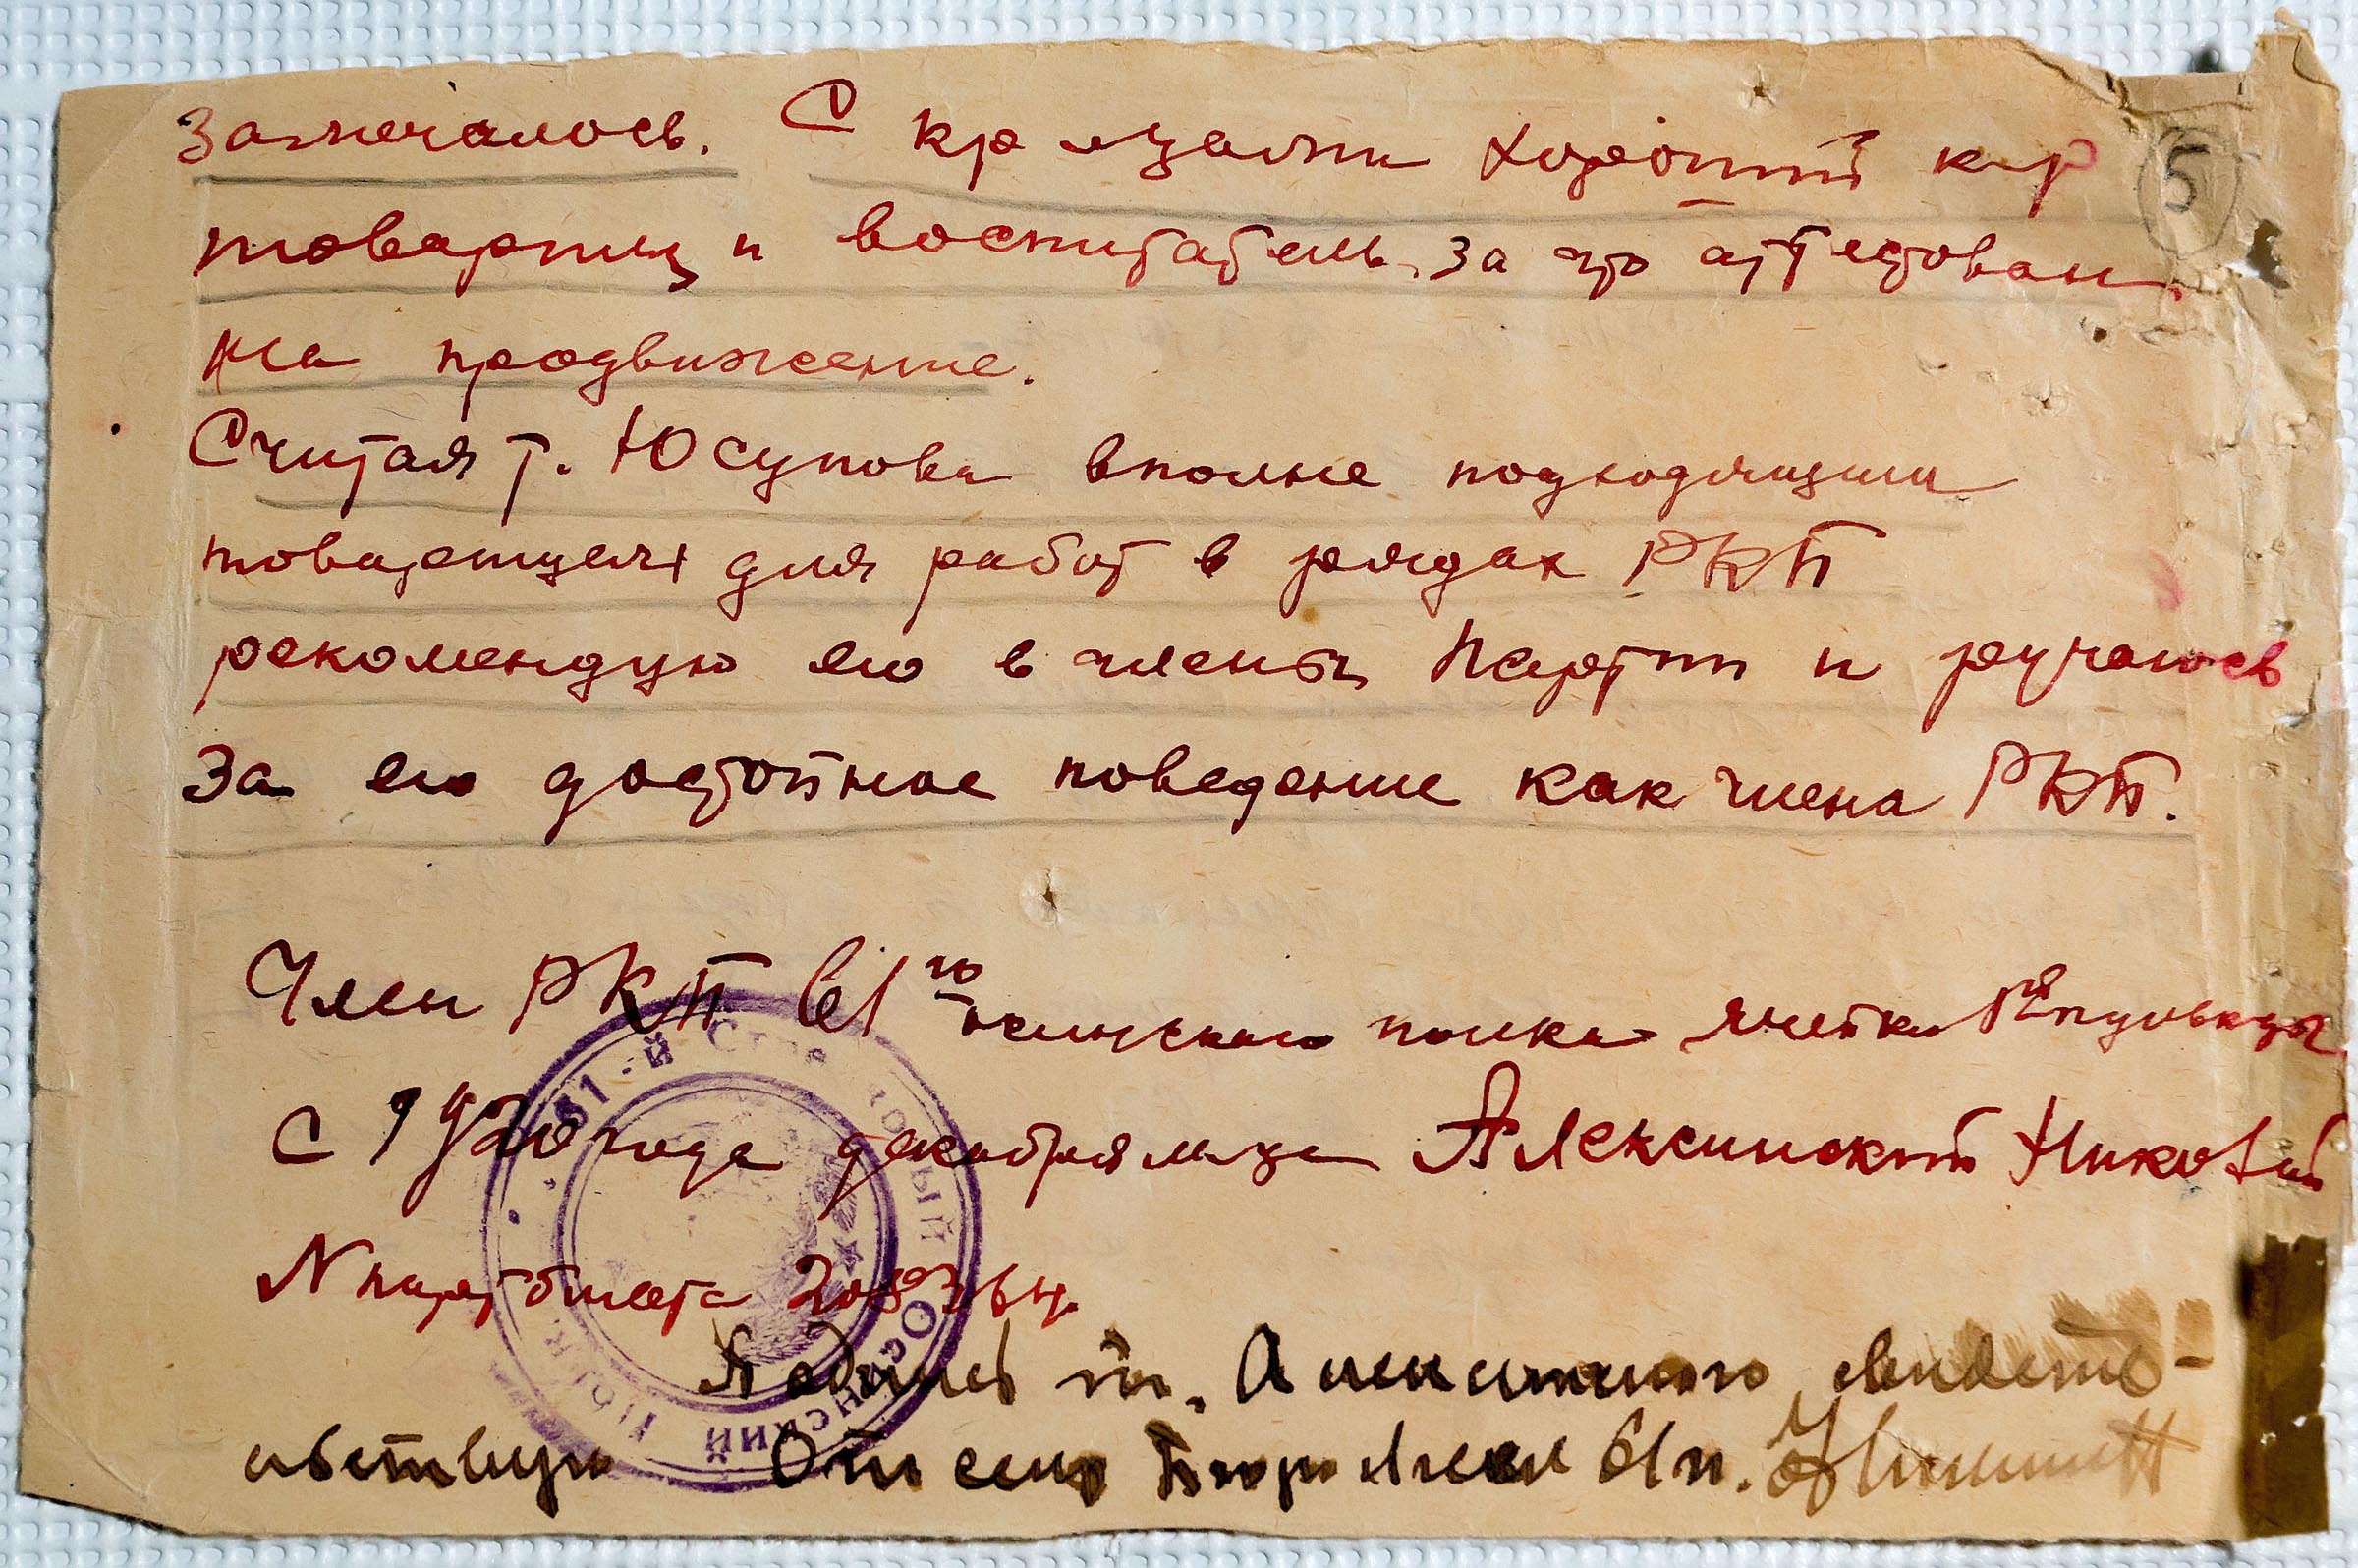 замечалось. С кр-мцами хороший к-р
товарищ и воспитатель, за что аттестован
на продвижение.
Считая т. Юсупова вполне подходящим
товарищем для работ в рядах РКП
рекомендую его в члены Партии и ручаюсь
За его достойное поведение как члена РКП.
Член РКП 61го полка ячейки
С 1920 года декабря м-ца Алексинский Николай
N партбилета 208364.
Подпись т. Алексинского свидетель-
ствую Отсекр Бюро Ячеек 61 п.
5
61-й Стрелковый Осинский Полк.